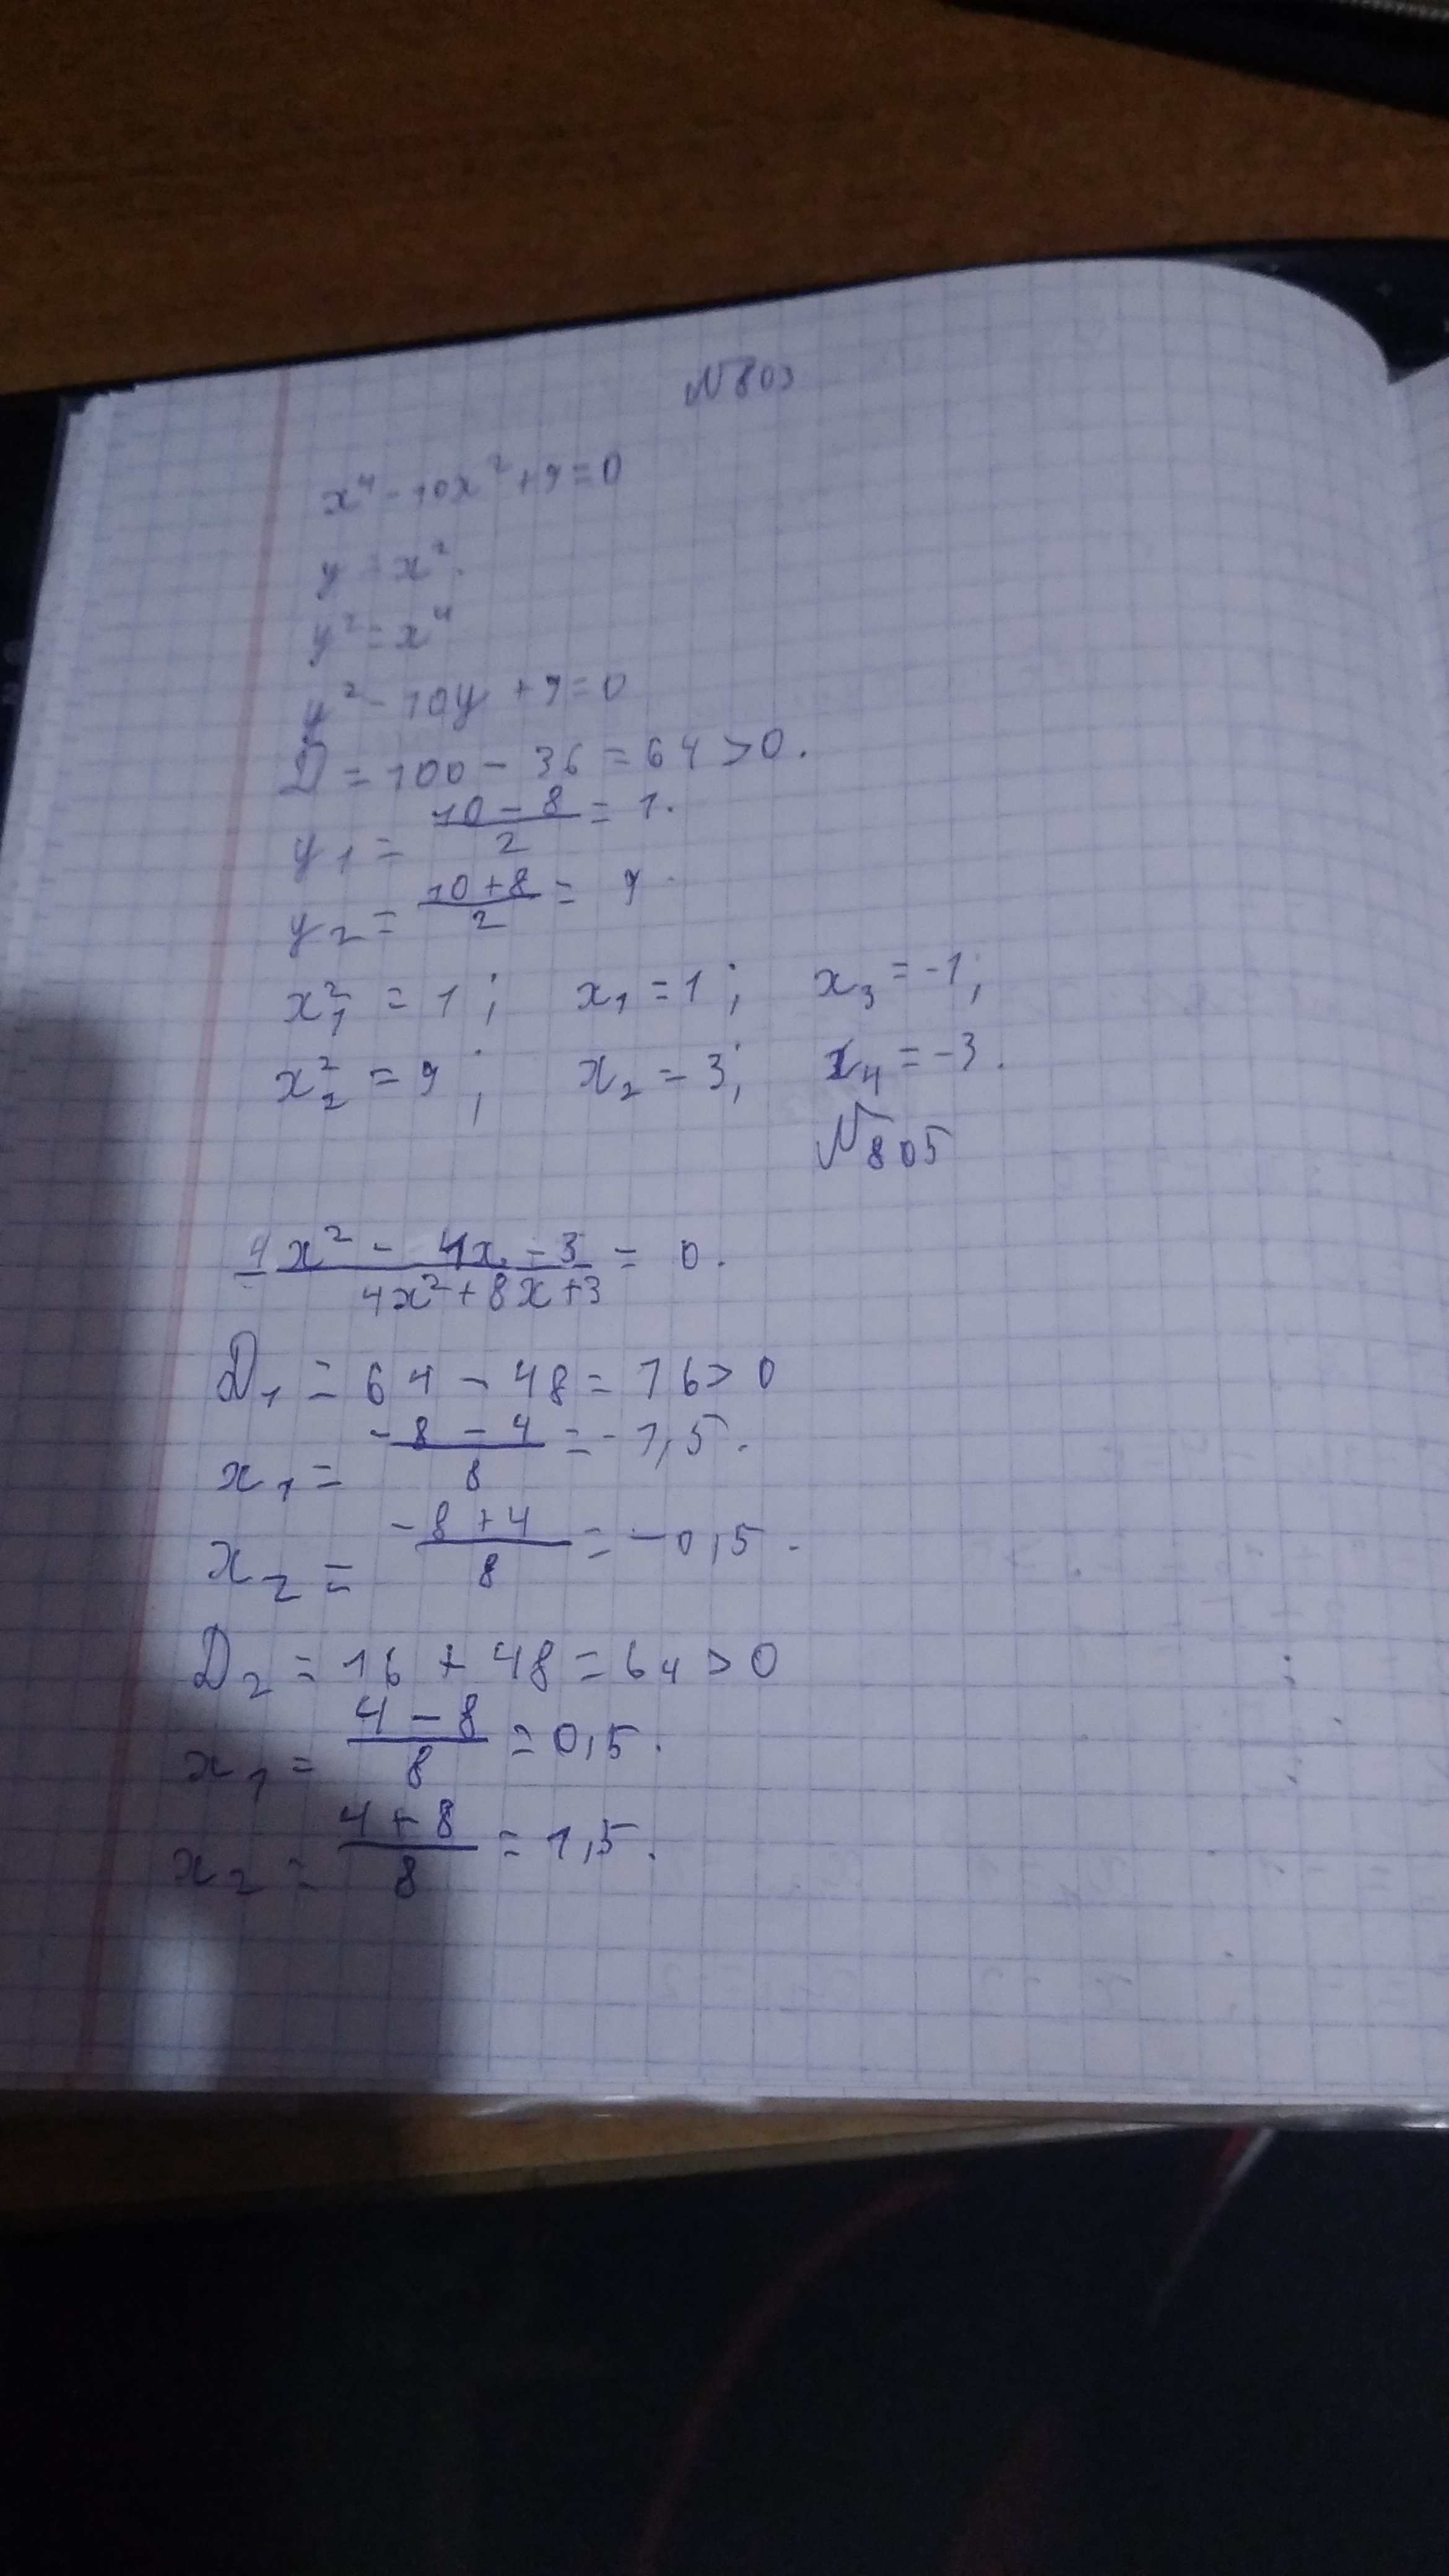 №803
x⁴ - 10x² + 9 = 0
y = x².
y² = x⁴
y² - 10y + 9 = 0
D = 100 - 36 = 64 > 0.
y₁ = (10 - 8)/2 = 1.
y₂ = (10 + 8)/2 = 9.
x₁² = 1; x₁ = 1; x₃ = -1;
x₂² = 9; x₂ = 3; x₄ = -3.
№805
(4x² - 4x - 3)/(4x² + 8x + 3) = 0.
D₁ = 64 - 48 = 16 > 0
x₁ = (-8 - 4)/8 = -1,5.
x₂ = (-8 + 4)/8 = -0,5.
D₂ = 16 + 48 = 64 > 0
x₁ = (4 - 8)/8 = 0,5.
x₂ = (4 + 8)/8 = 1,5.